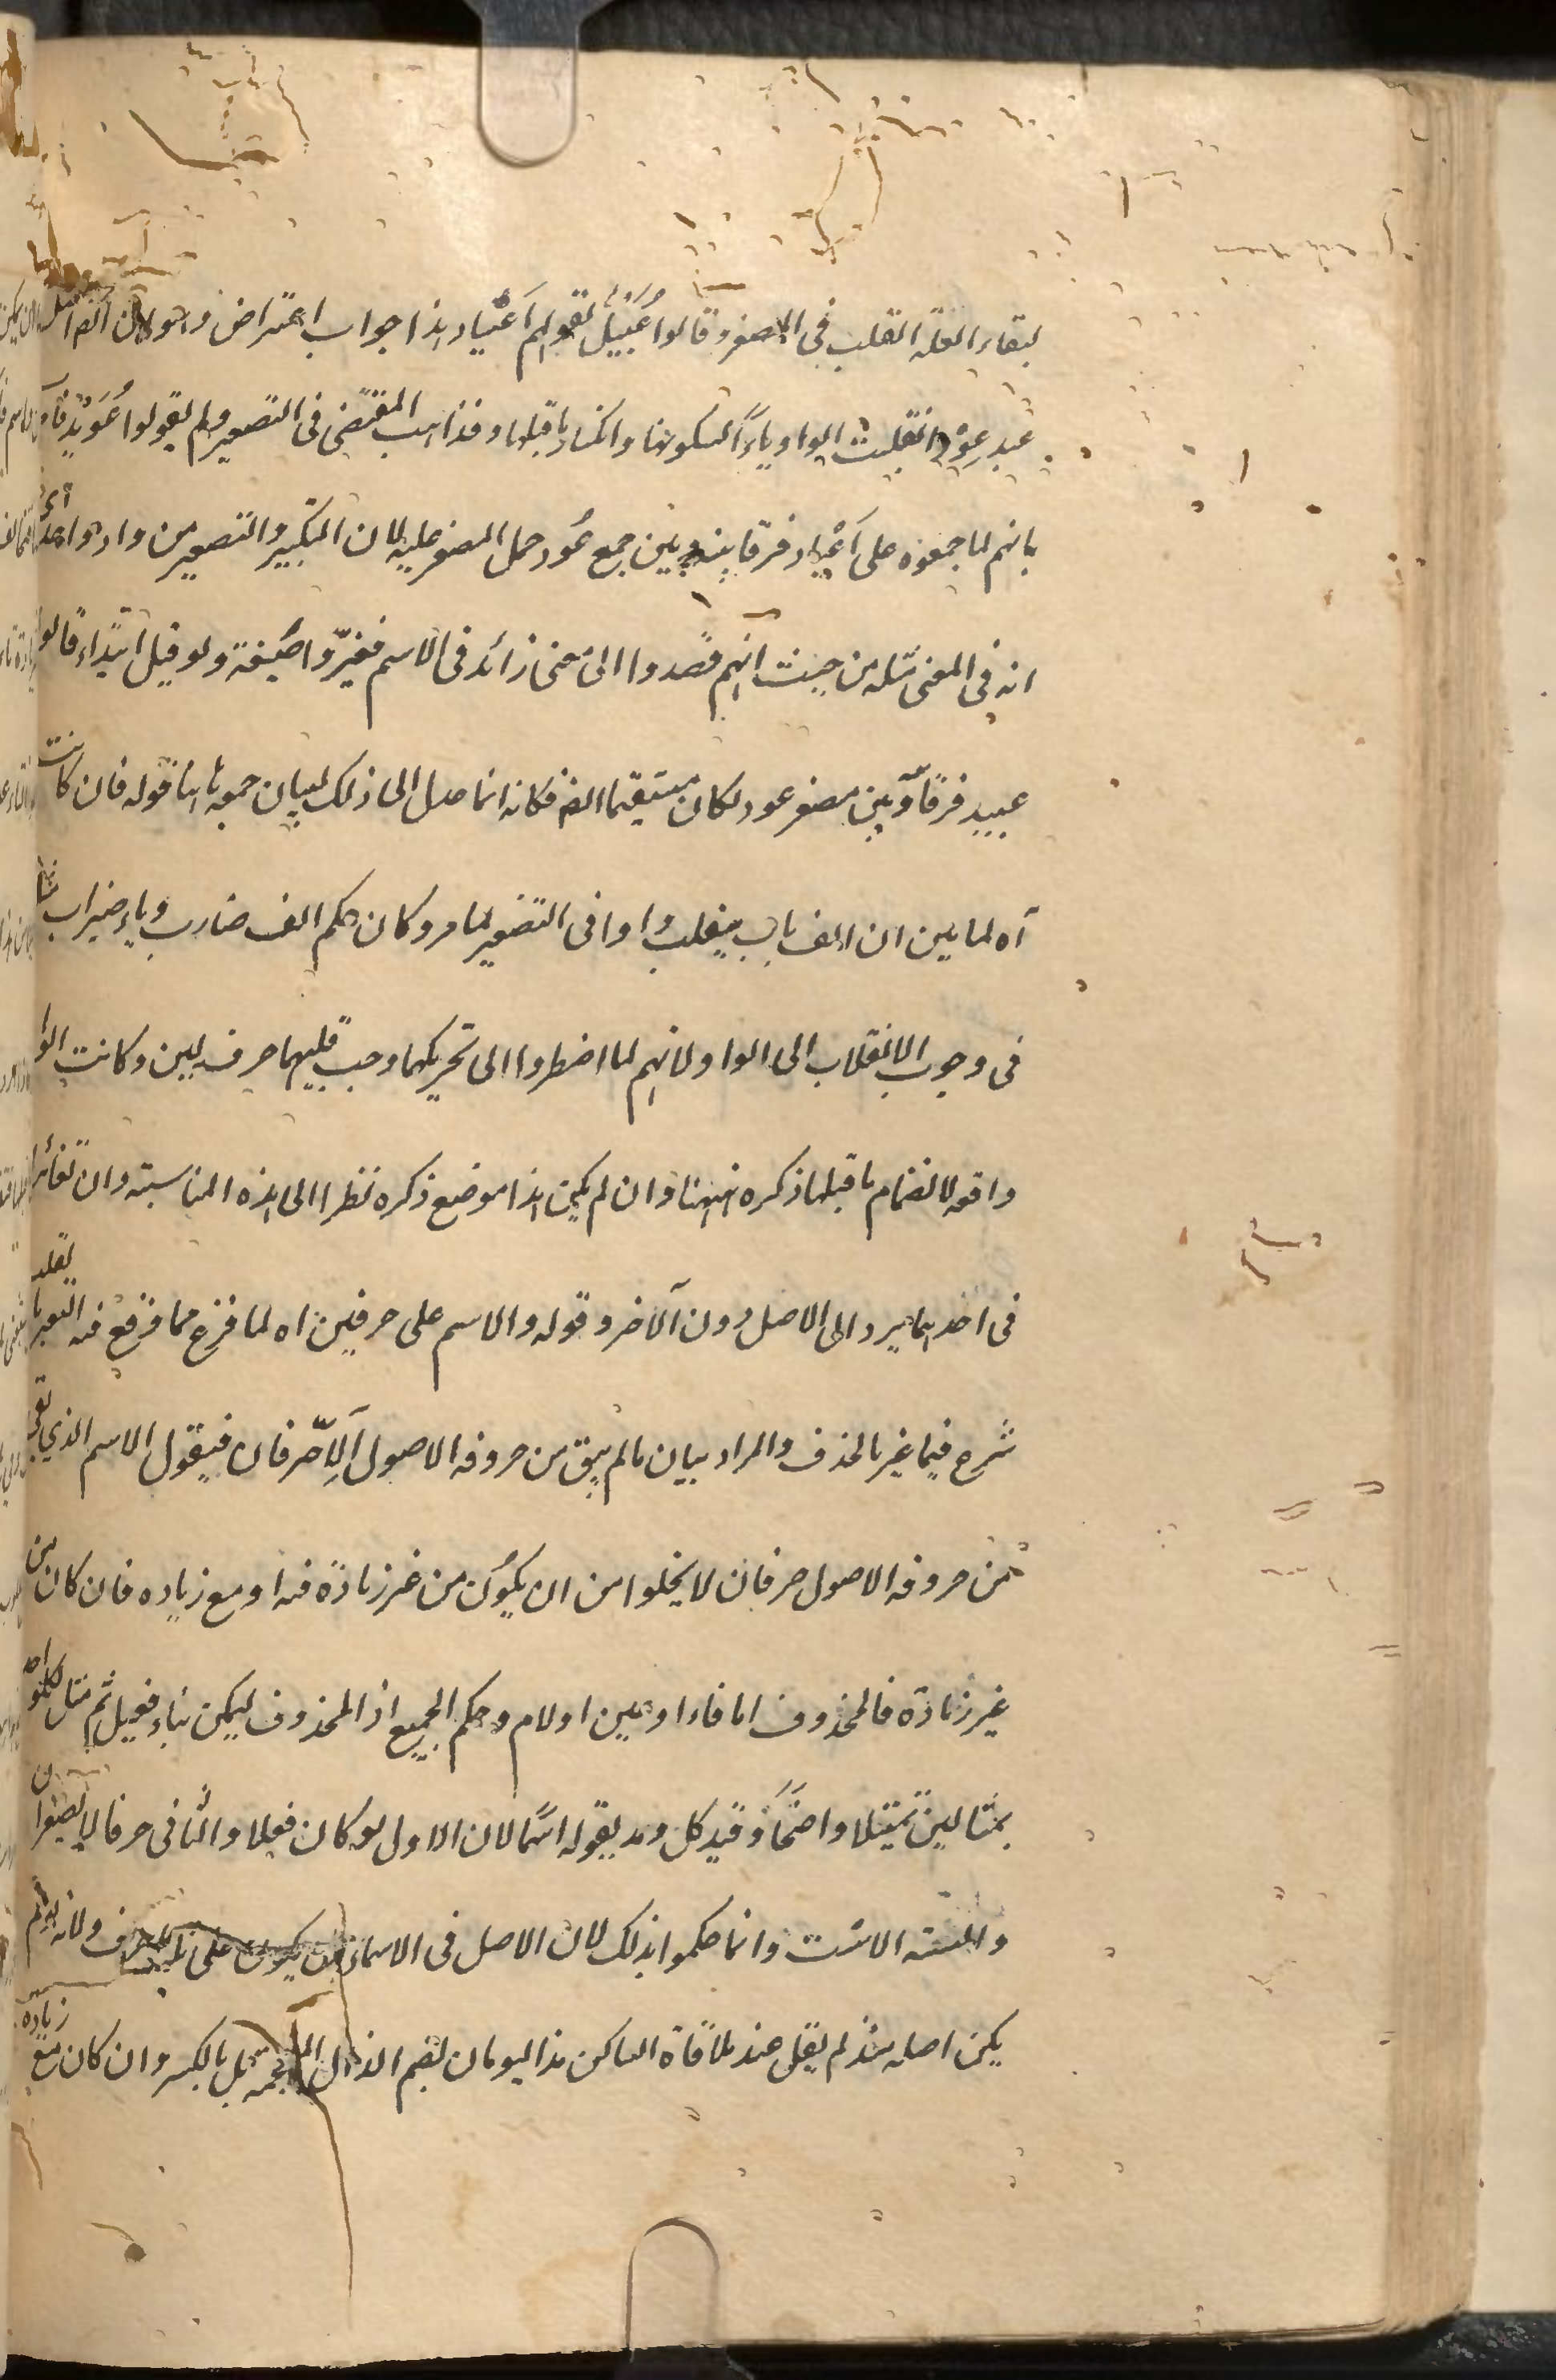 لبقاء العلة القلب فى المصغر وقالوا عُيَيْدٌ لقولهم اَعْيَاد هذا جواب اعتراض وهو ان اصل
عيد عِوْد انقلبت الواو ياءً لسكونها وانكسار ما قبلها وقد ذهب المقتضى فى التصغير ولم يقولوا عُوَيْد
بانهم لما جمعوه على اَعْيَاد فرقا بينه وبين جمع عُود حمل المصغر عليه لان التكبير والتصغير من واد واحد
انه فى المعنى مثله من حيث انهم قصدوا الى معنى زائد فى الاسم فغيّروا صيغة ولو قيل ابتداء قالوا
عييد فرقاً وبين مصغر عود لكان مستقيما ايضا فكانه انما عدل الى ذلك لبيان جمعه ايضا قوله فان كانت
آه لما بين ان الف باب ينقلب واوا فى التصغير لما مر وكان حكم الف ضارب وياء ضيراب مثلها
فى وجوب الانقلاب الى الواو لانهم لما اضطروا الى تحريكهما وجب قلبهما حرف لين وكانت الواو
واقعه لانضمام ما قبلها ذكره ههنا وان لم يكن هذا موضع ذكره نظرا الى هذه المناسبة وان تغائرا
فى احدهما يرد الى الاصل دون الآخر وقوله والاسم على حرفين اه لما فرغ مما وقع فيه التغير بالقلب
شرع فيما غير بالحذف والمراد بيان ما لم يبق من حروفه الاصول اِلاّ حرفان فيقول الاسم الذي بقى
من حروفه الاصول حرفان لا يخلوا من ان يكون من غير زيادة فيه او مع زياده فان كان من
غير زيادة فالمحذوف اما فاء او عين او لام وحكم الجميع رد المحذوف ليمكن بناء فعيل ثم مثل لكل واحد
بمثالين تمثيلا واضحًا وقيد كل ومذ بقوله اسمًا لان الاول لو كان فعلا والثانى حرفا لا يصغران
والسته الاست وانما حكموا بذلك لان الاصل فى الاسماء ان يكون على ثلثة احرف ولانه لو لم
يكن اصله منذ لم يقل عند ملاقاة الساكن مذ اليوم بضم الذال المعجمه بل بالكسر وان كان مع زياده